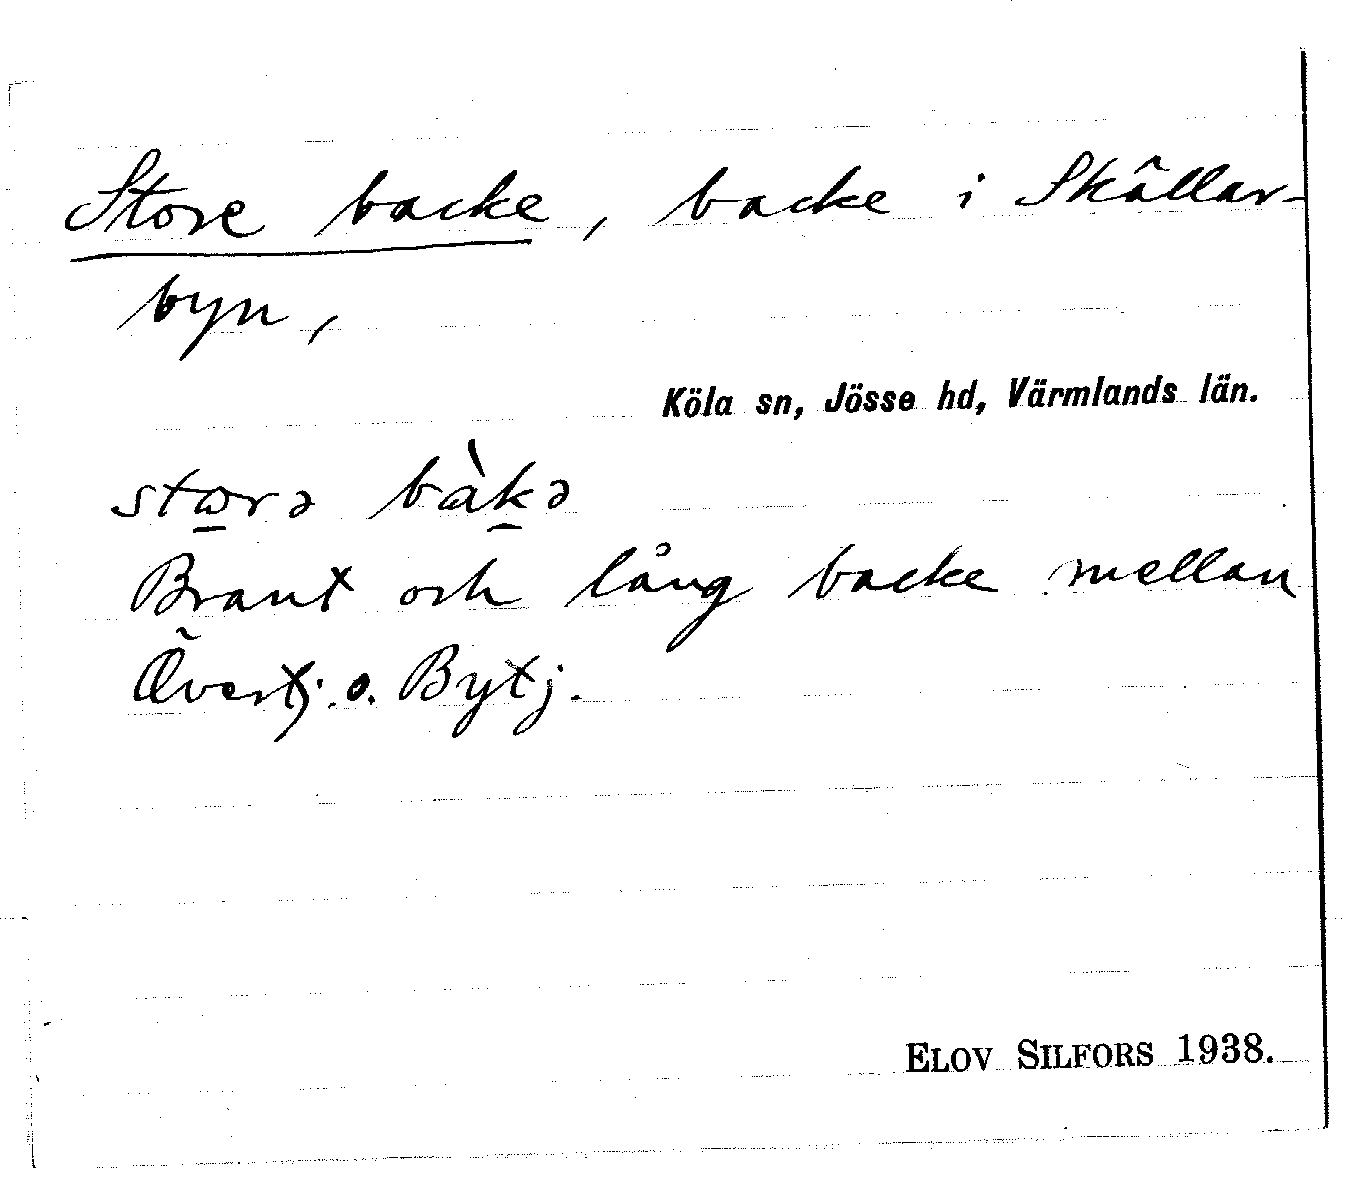 Store backe, backe i Skällar-
byn,
Köla sn, Jösse hd, Värmlands län.
storə bàkə
Brant och lång backe mellan
Övertj. o. Bytj.
ELOV SILFORS 1938.